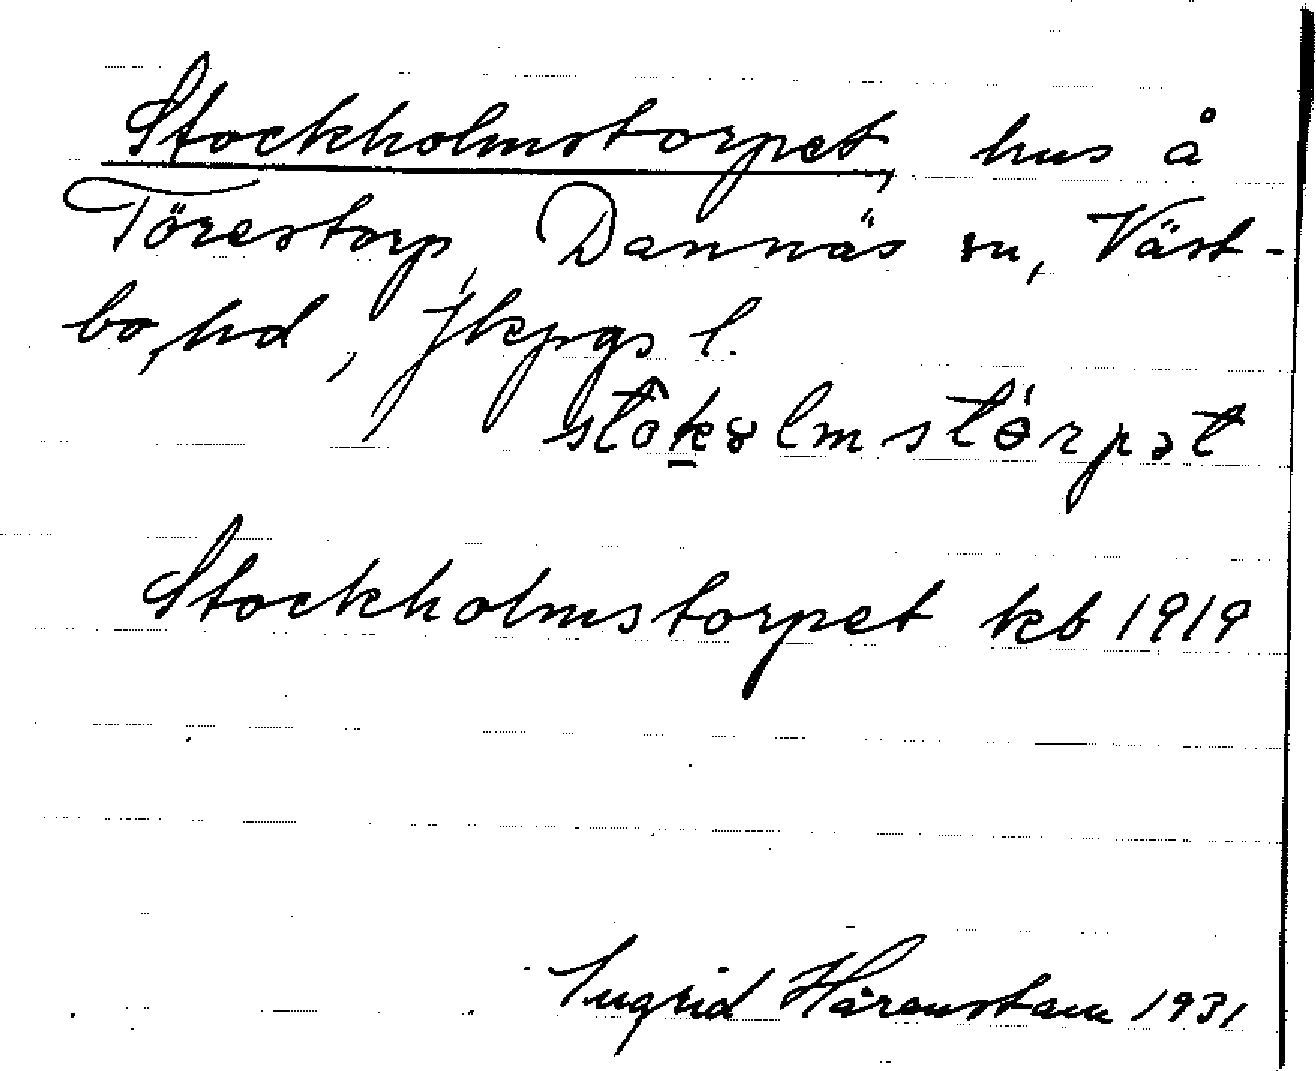 Stockholmstorpet, hus å
Törestorp, Dannäs sn, Väst-
bo hd, Jkpgs l.
Stockholmstorpet kb 1919
Ingrid Härenstam 1931